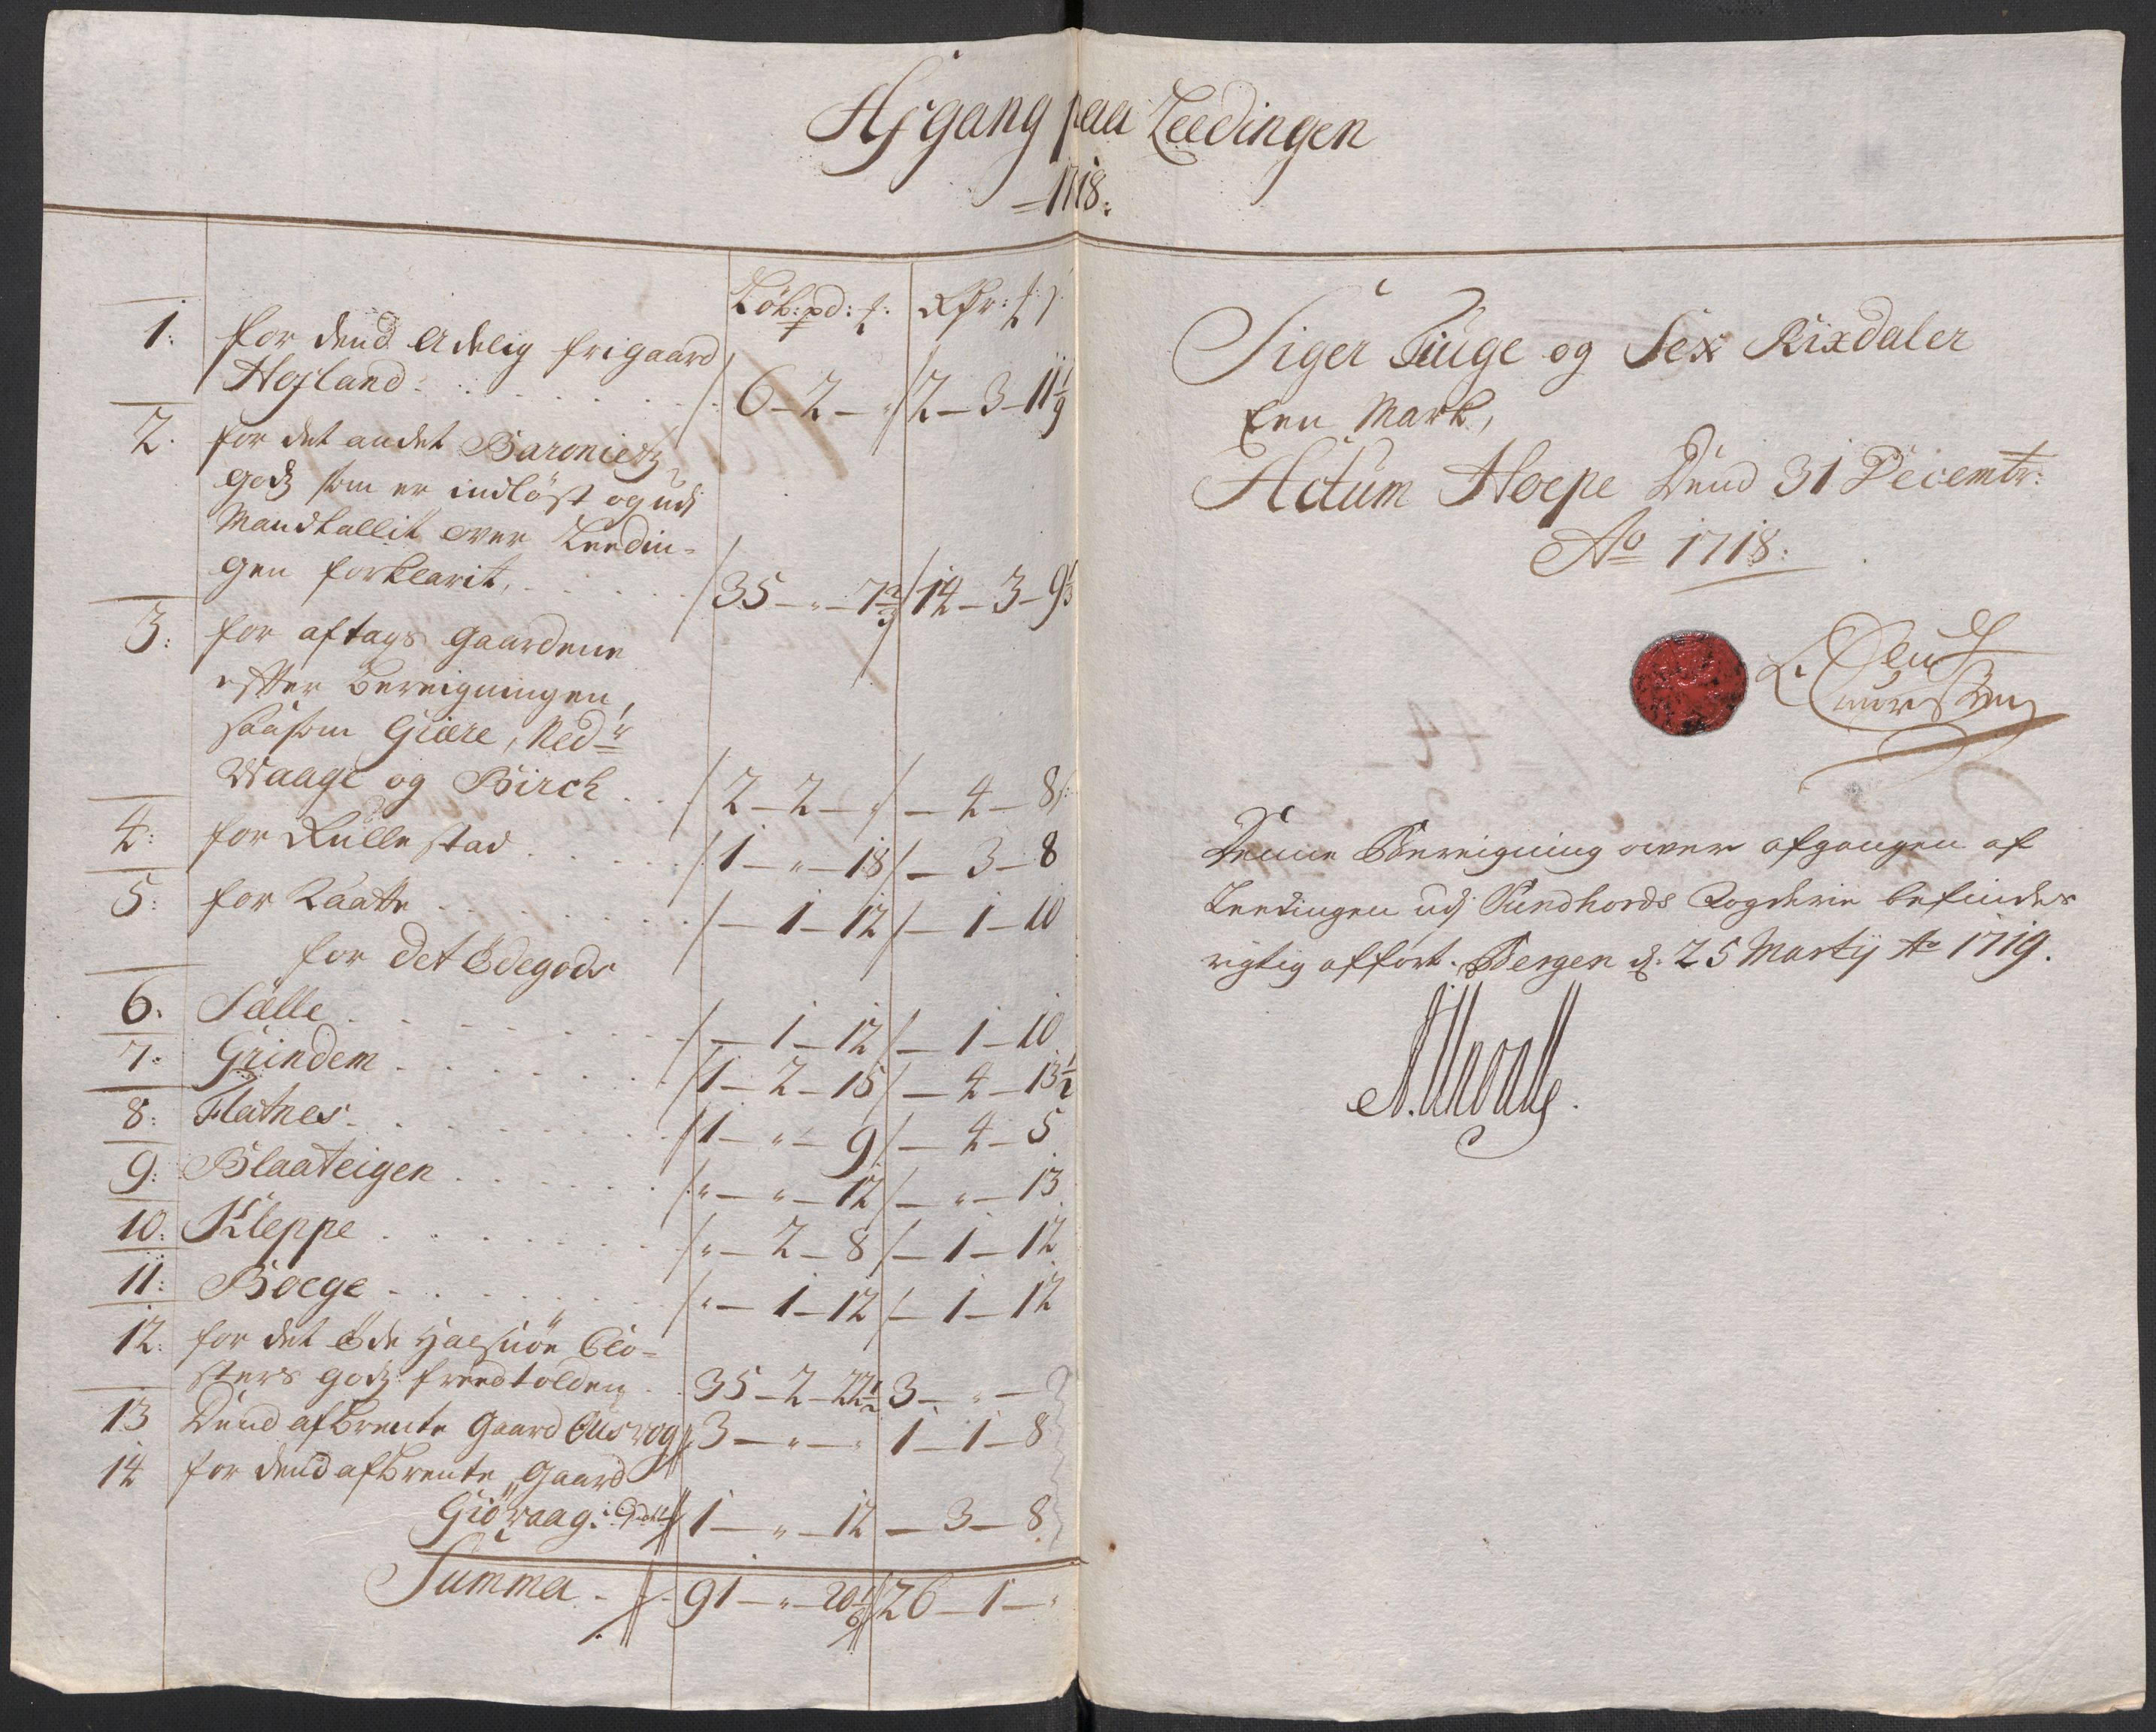 Afgang paa Leedingen
1718:
Løb: pd: Rdr:
1: for dend Adelig frigaard
Hofland 6 - 2 - " 2 - 3 - 11 1/9
2. for det andet Baroniets
godz som er indløst og udj
Mandtallit over Leedin-
gen forklarit, 35 - " - 7 2/3 14 - 3 - 9 1/3
3: for aftags gaardene
efter bereigningen,
saasom Giære, Nedr
Waage og Birch 2 - 2 - " - 4 - 8
4: for Rullestad 1 - " - 18 - 3 - 8
5: for Raatte - 1 - 12 - 1 - 10
for det Ødegods
6. Sælle - 1 - 12 - 1 - 10
7: Grindem 1 - 2 - 15 - 4 - 13 1/2
8: Flatnes 1 - " - 9 - 4 - 5
9: Blaateigen " - " - 12 - " - 13
10: Kleppe " - 2 - 8 - 1 - 12
11: Boege " - 1 - 12 - 1 - 12
12: for det Øde Halsnøe Clo-
sters godz 35 - 2 - 22 1/2 3 - " -
13 Dend afbrente Gaard 3 - " - " 1 - 1 - 8
14 for dend afbrente Gaard
Giøvaag: 1 - " - 12 - 3 - 8
Summa 91 - " - 20 1/6 26 - 1 - "
Siger Tiuge og Sex Rixdaler
Een Mark,
Actum Hoepe Dend 31 Decembr:
Ao 1718:
Denne Bereigning over afgangen af
Leedingen udj Sundhords Fogderie befindes
rigtig afført. Bergen d: 25 Martij Ao 1719.